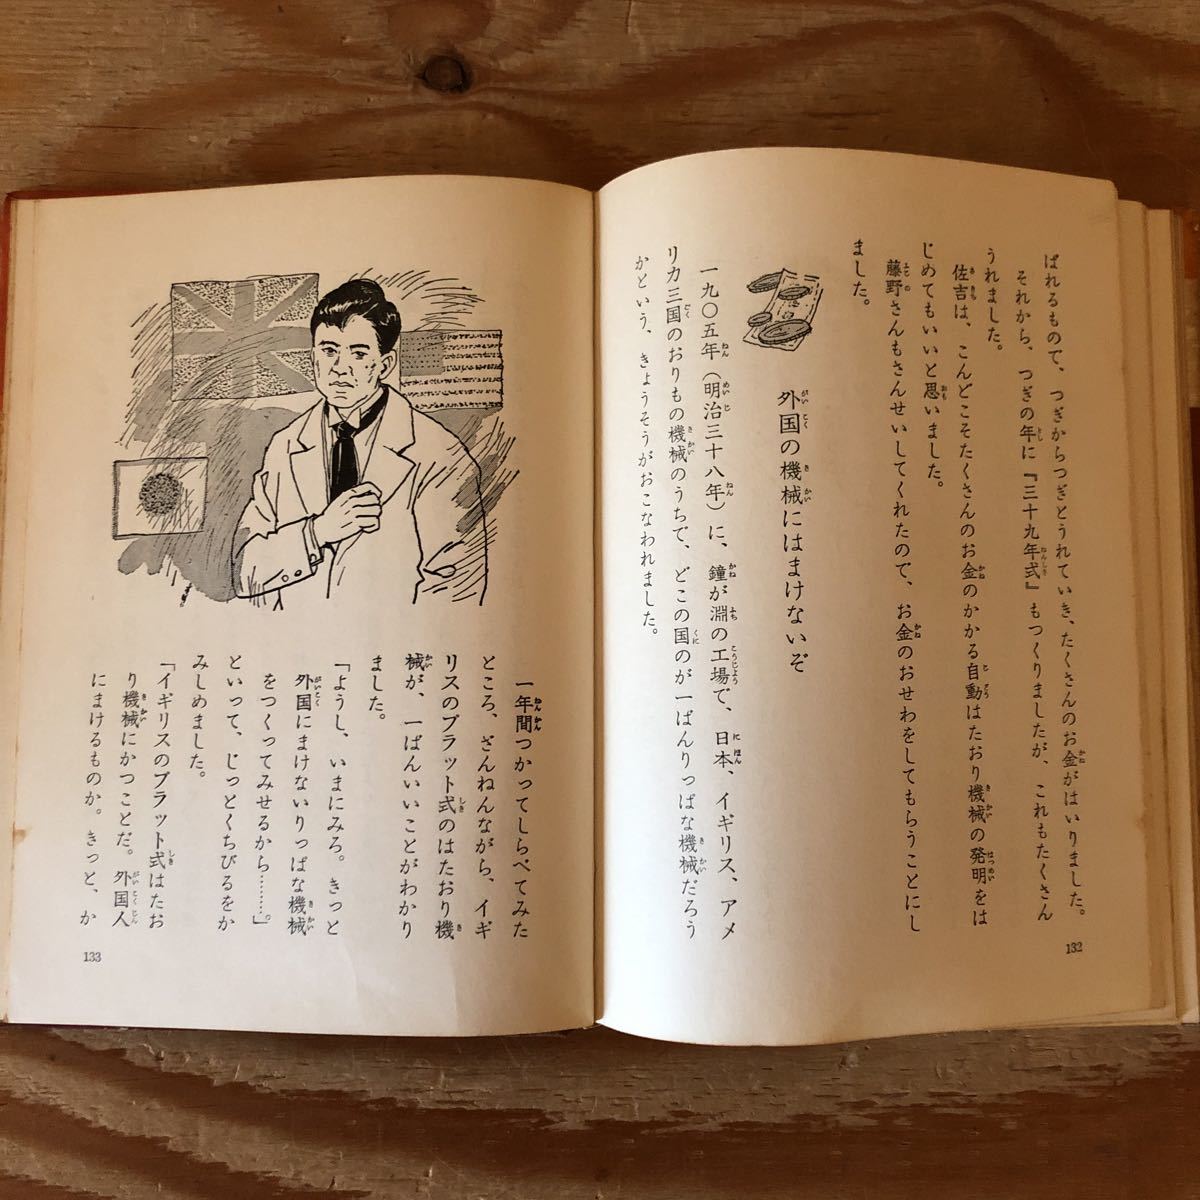 ばれるもので、つぎからつぎとうれていき、たくさんのお金がはいりました。
それから、つぎの年に『三十九年式』もつくりましたが、これもたくさん
うれました。
佐吉は、こんどこそたくさんのお金のかかる自動はたおり機械の発明をは
じめてもいいと思いました。
藤野さんもさんせいしてくれたので、お金のおせわをしてもらうことにし
ました。
外国の機械にはまけないぞ
一九〇五年(明治三十八年)に、鐘が淵の工場で、日本、イギリス、アメ
リカ三国のおりもの機械のうちで、どこの国のが一ばんりっぱな機械だろう
かという、きょうそうがおこなわれました。
132
一年間つかってしらべてみた
ところ、ざんねんながら、イギ
リスのプラット式のはたおり機
械が、一ばんいいことがわかり
ました。
「ようし、いまにみろ。きっと
外国にまけないりっぱな機械
をつくってみせるから………。」
といって、じっとくちびるをか
みしめました。
「イギリスのプラット式はたお
り機械にかつことだ。外国人
にまけるものか。きっと、か
133